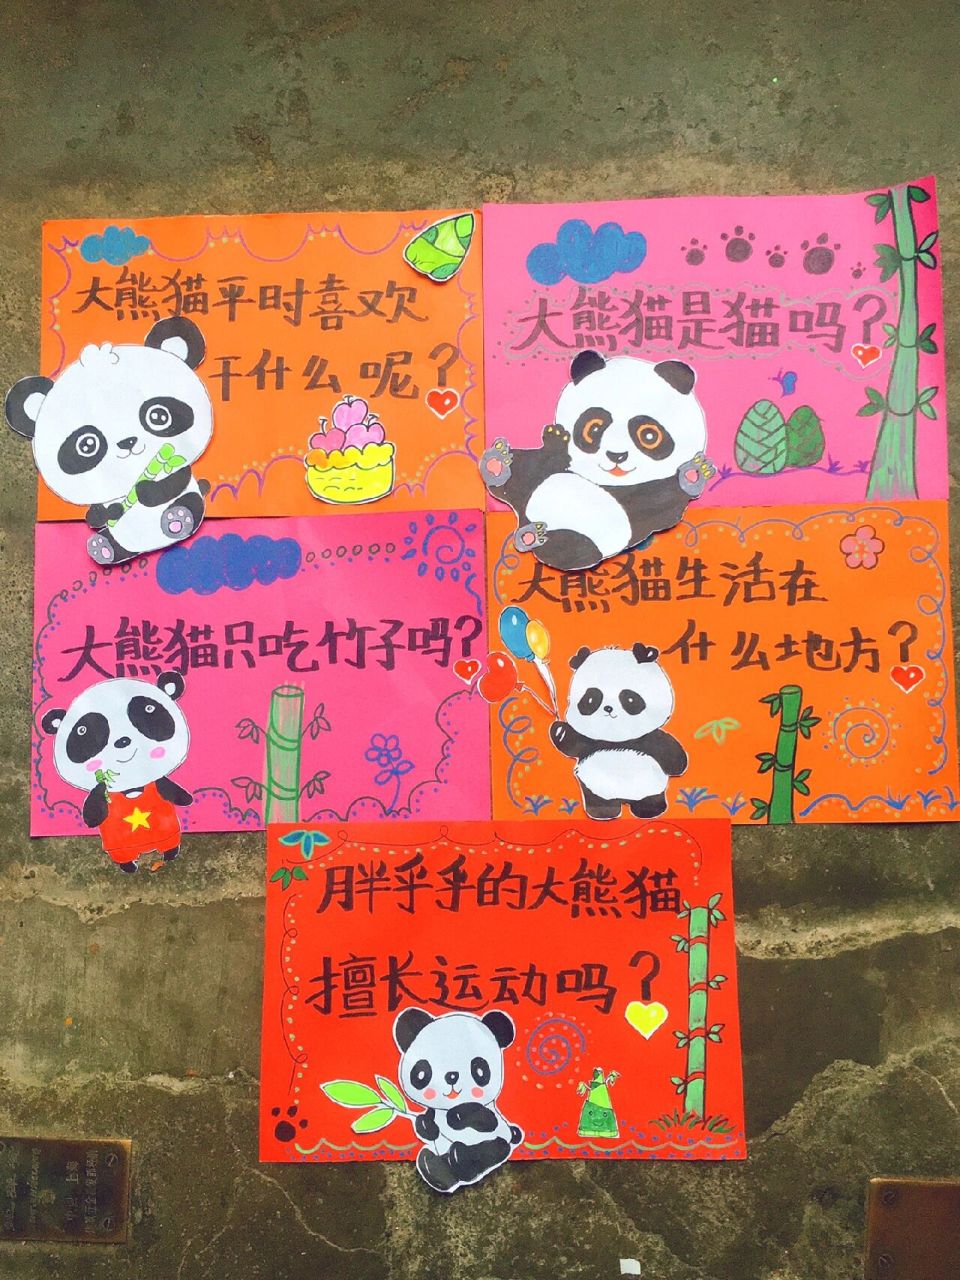 大熊猫平时喜欢
干什么呢？
大熊猫是猫吗？
大熊猫只吃竹子吗？
大熊猫生活在
什么地方？
胖乎乎的大熊猫
擅长运动吗？